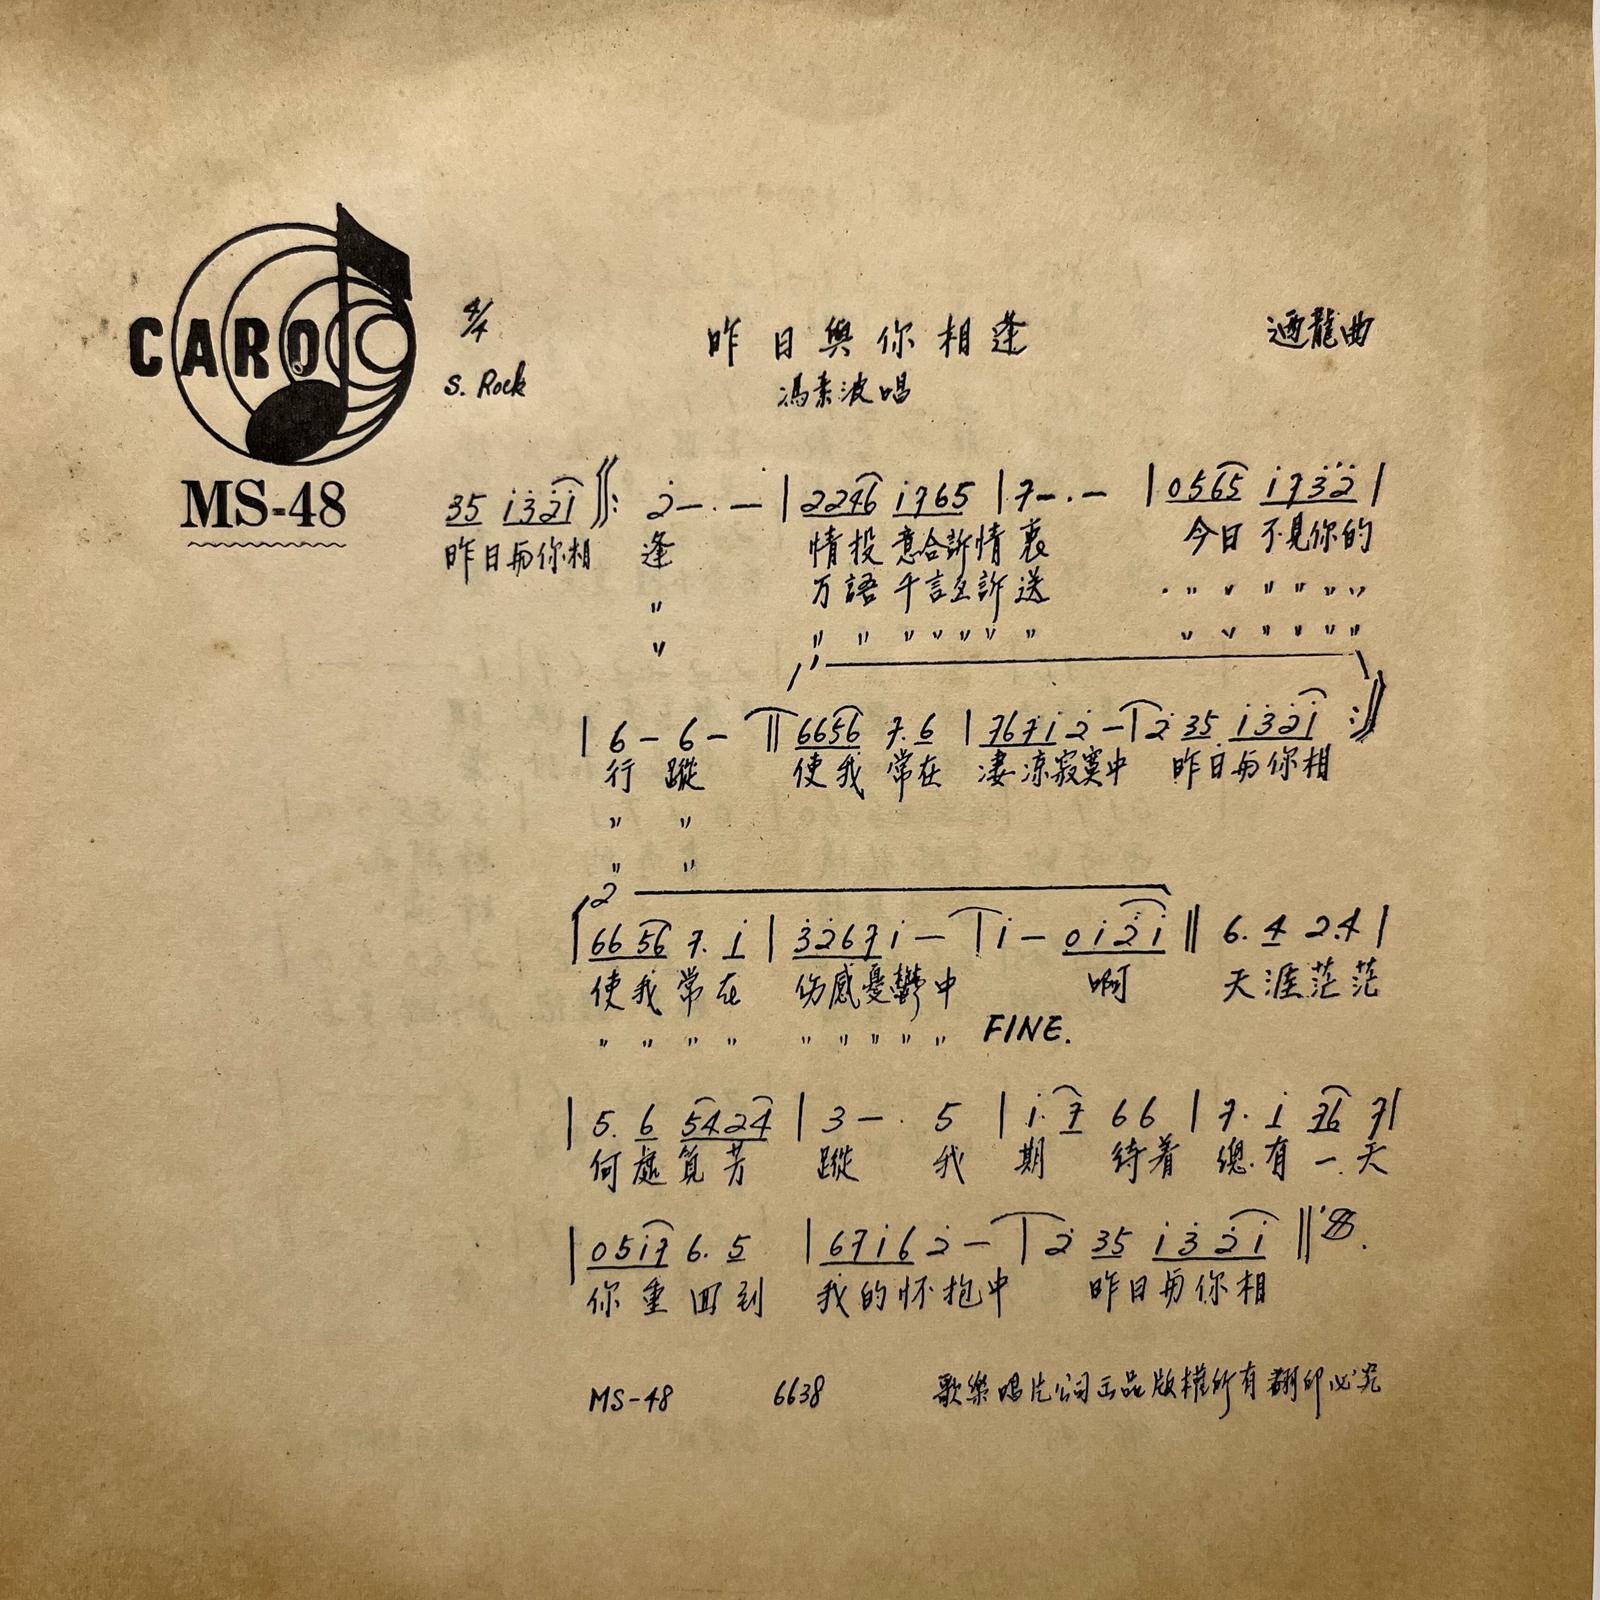 CARO
MS-48
4/4
昨日與你相逢
迺龍曲
S. Rock
馮素波唱
35 i32i ‖: 2—·— | 2246 i765 | 7—·— | 0565 i732 |
昨日与你相 逢 情投意合訴情衷 今日不見你的
〃 万語千言互訴送 〃 〃 〃 〃 〃 〃
〃 〃 〃 〃 〃 〃 〃 〃 〃 〃 〃 〃 〃 〃
1
| 6— 6— ‖ 6656 7.6 | 767i 2— | 2 35 i32i :‖
行蹤 使我常在 凄凉寂寞中 昨日与你相
〃 〃
〃 〃
2
| 6656 7. i | 3267 i— | i— 0i2i ‖ 6. 4 2.4 |
使我常在 伤感憂鬱中 啊 天涯茫茫
〃 〃 〃 〃 〃 〃 〃 〃 〃 FINE.
| 5. 6 5424 | 3—· 5 | i. 7 66 | 7. i 76 7 |
何處覓芳 蹤 我 期 待着 總有一天
| 05i7 6. 5 | 67i6 2— | 2 35 i32i ‖
你重回到 我的怀抱中 昨日与你相
MS-48 6638 歌樂唱片公司出品版權所有翻印必究